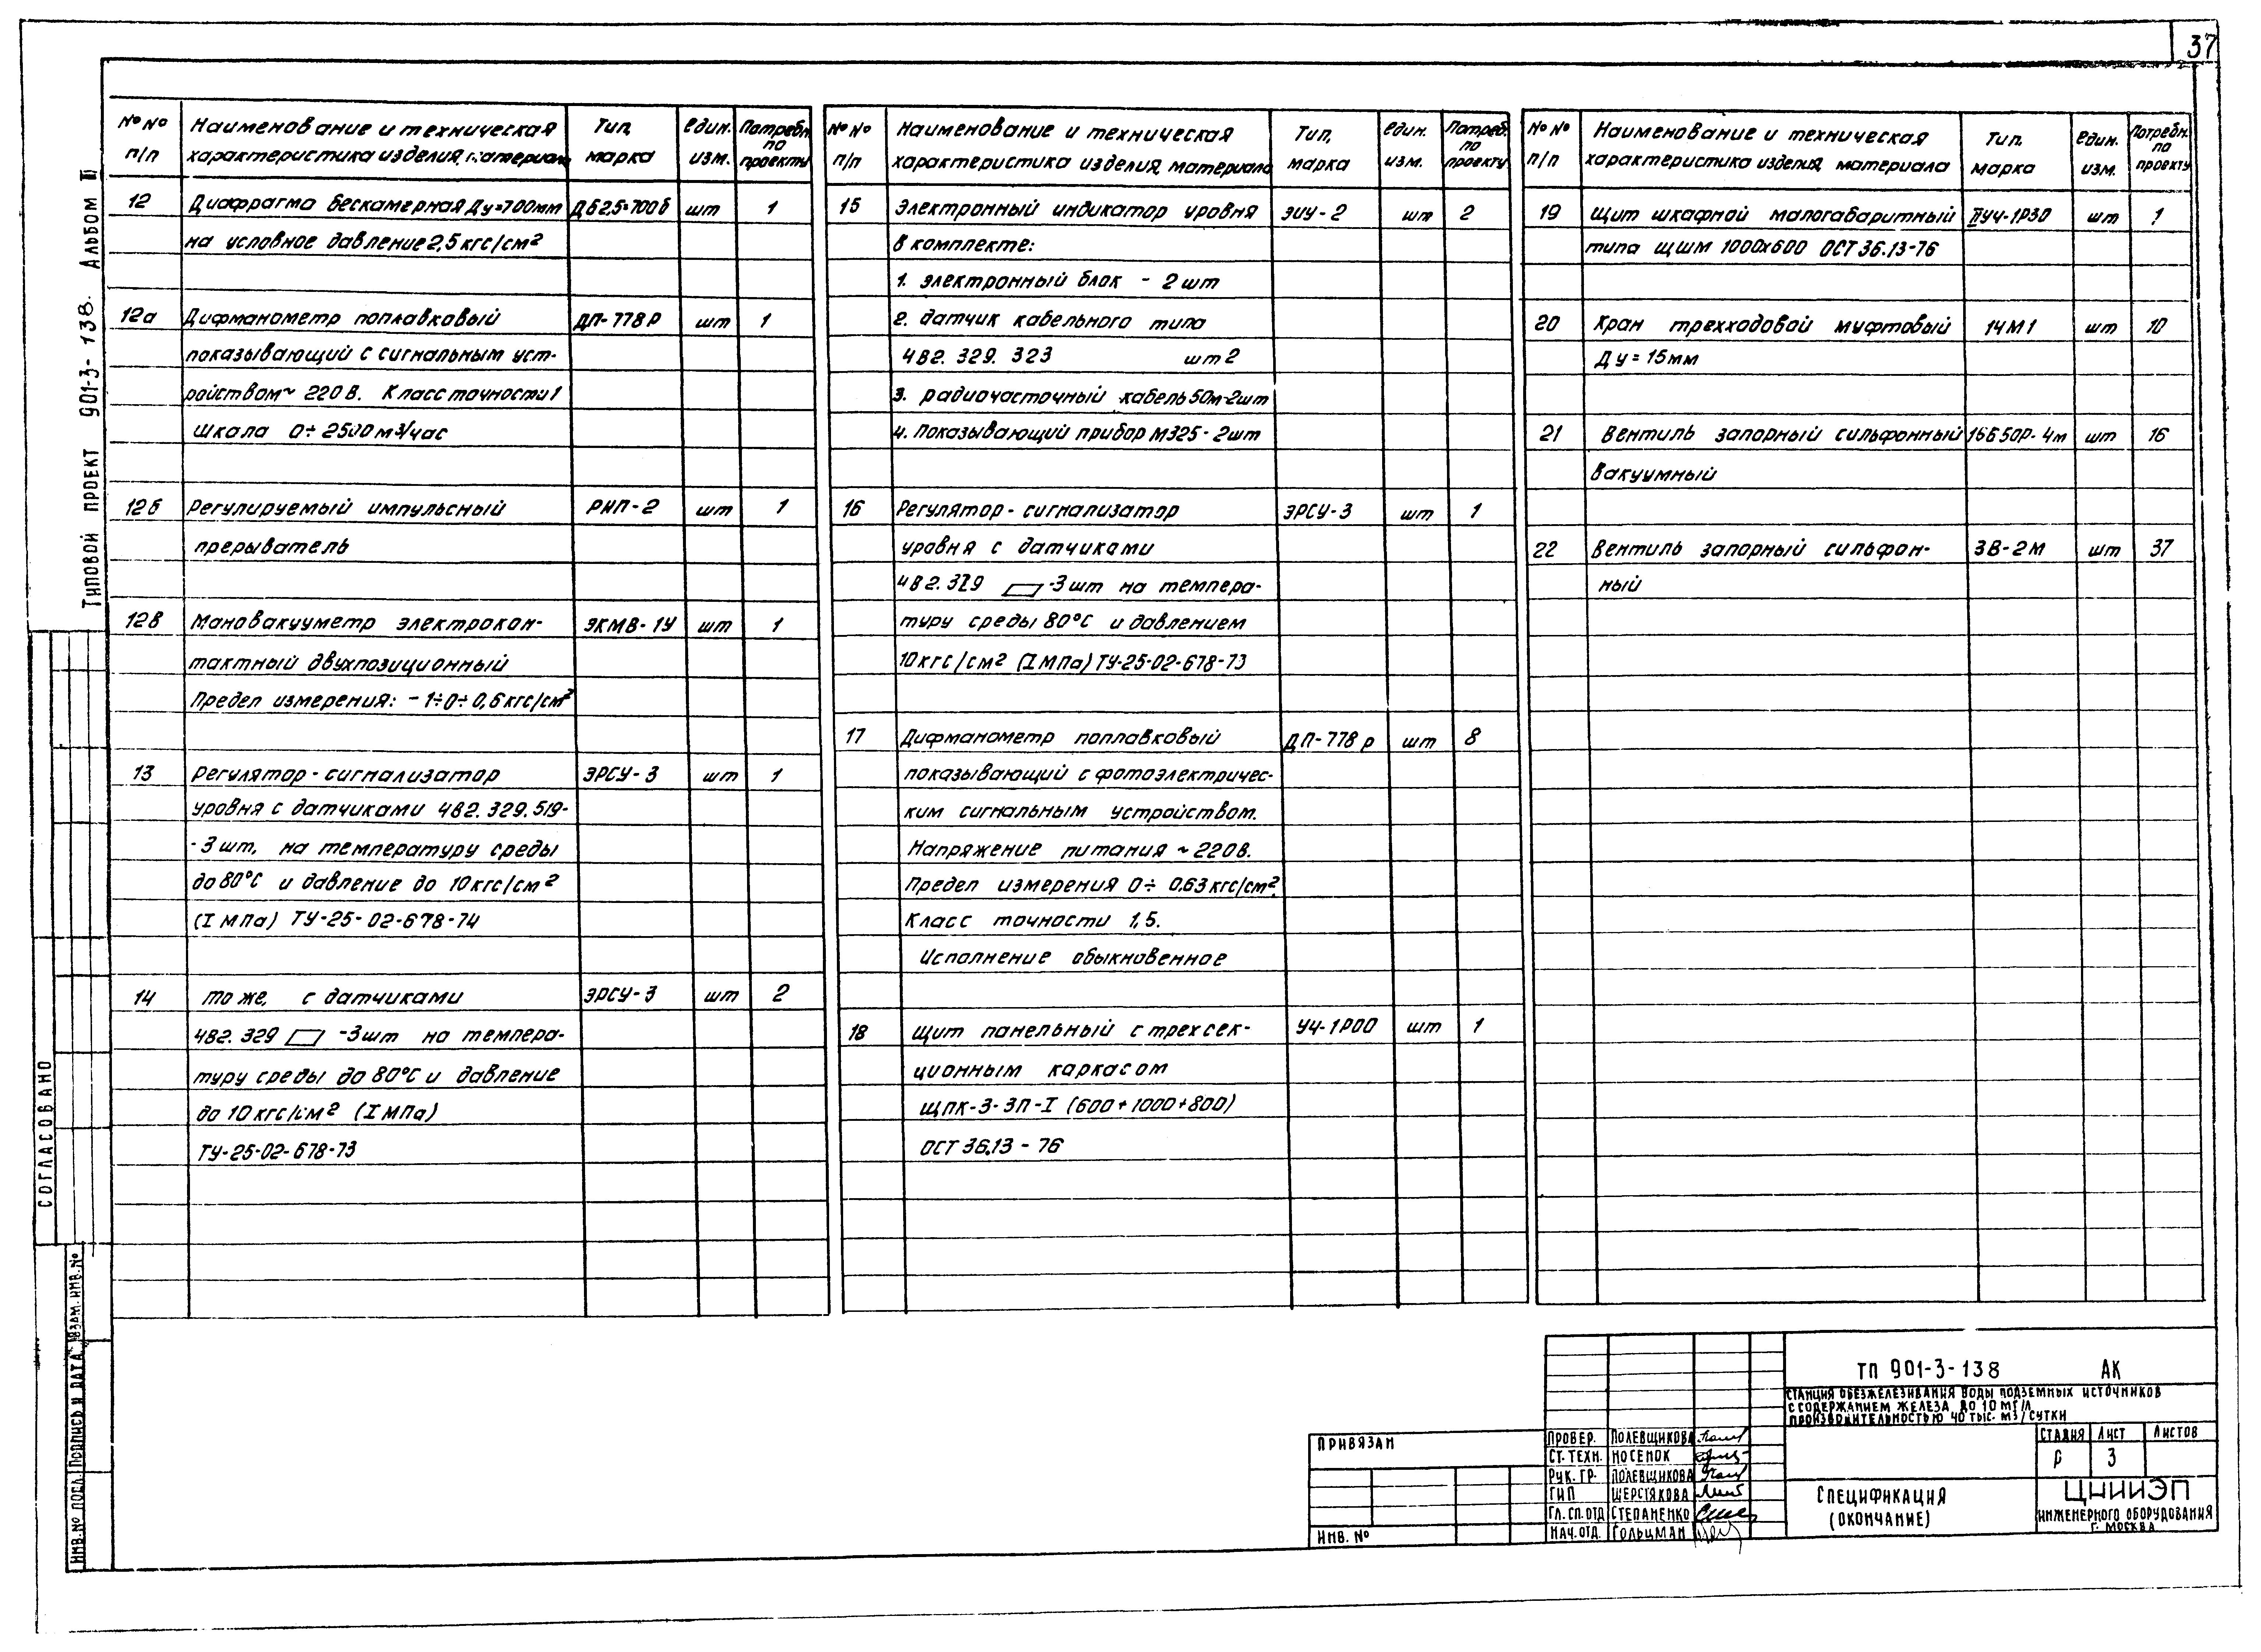 37
Типовой проект 901-3-138. Альбом II
СОГЛАСОВАНО
ИНВ.№ ПОДЛ. ПОДПИСЬ И ДАТА ВЗАМ. ИНВ.№
№№ п/п
Наименование и техническая
характеристика изделия, материала
Тип, марка
един. изм.
Потребн. по проекту
12 Диафрагма бескамерная Ду=700мм ДБ2,5-700б шт 1
на условное давление 2,5 кгс/см²
12а Дифманометр поплавковый ДП-778р шт 1
показывающий с сигнальным уст-
ройством ~ 220 В. Класс точности 1
шкала 0÷2500 м³/час
12б Регулируемый импульсный РИП-2 шт 1
прерыватель
12в Мановакууметр электрокон- ЭКМВ-1У шт 1
тактный двухпозиционный
Предел измерения: -1÷0÷0,6 кгс/см²
13 Регулятор-сигнализатор ЭРСУ-3 шт 1
уровня с датчиками 4В2.329.519-
-3 шт, на температуру среды
до 80°С и давление до 10 кгс/см²
(I МПа) ТУ-25-02-678-74
14 то же, с датчиками ЭРСУ-3 шт 2
4В2.329 -3шт на темпера-
туру среды до 80°С и давление
до 10 кгс/см² (I МПа)
ТУ-25-02-678-73
№№ п/п
Наименование и техническая
характеристика изделия, материала
Тип, марка
един. изм.
Потреб. по проекту
15 Электронный индикатор уровня ЭИУ-2 шт 2
в комплекте:
1. электронный блок - 2 шт
2. датчик кабельного типа
4В2.329.323 шт 2
3. радиочастотный кабель 50м-2шт
4. Показывающий прибор М325-2шт
16 Регулятор-сигнализатор ЭРСУ-3 шт 1
уровня с датчиками
4В2.329 -3 шт на темпера-
туру среды 80°С и давлением
10 кгс/см² (I МПа) ТУ-25-02-678-73
17 Дифманометр поплавковый ДП-778р шт 8
показывающий с фотоэлектричес-
ким сигнальным устройством.
Напряжение питания ~ 220в.
Предел измерения 0÷ 0.63 кгс/см².
Класс точности 1,5.
Исполнение обыкновенное
18 Щит панельный с трехсек- УЧ-1Р00 шт 1
ционным каркасом
ЩПК-3-ЗП-I (600+1000+800)
ОСТ 36.13-76
№№ п/п
Наименование и техническая
характеристика изделия, материала
Тип, марка
един. изм.
Потребн. по проекту
19 Щит шкафной малогабаритный IIУЧ-1Р30 шт 1
типа ЩШМ 1000х600 ОСТ 36.13-76
20 Кран трехходовой муфтовый 14М1 шт 10
Ду = 15мм
21 Вентиль запорный сильфонный 15Б50Р-4м шт 16
вакуумный
22 Вентиль запорный сильфон- ЗВ-2М шт 37
ный
ТП 901-3-138 АК
СТАНЦИЯ ОБЕЗЖЕЛЕЗИВАНИЯ ВОДЫ ПОДЗЕМНЫХ ИСТОЧНИКОВ
С СОДЕРЖАНИЕМ ЖЕЛЕЗА ДО 10 МГ/Л
ПРОИЗВОДИТЕЛЬНОСТЬЮ 40 ТЫС. М3/СУТКИ
СТАДИЯ ЛИСТ ЛИСТОВ
Р 3
СПЕЦИФИКАЦИЯ
(ОКОНЧАНИЕ)
ЦНИИЭП
ИНЖЕНЕРНОГО ОБОРУДОВАНИЯ
Г. МОСКВА
ПРИВЯЗАН
ИНВ. №
ПРОВЕР. ПОЛЕВЩИКОВА
СТ.ТЕХН. НОСЕНОК
РУК. ГР. ПОЛЕВЩИКОВА
ГИП ШЕРСТЯКОВА
ГЛ.СП.ОТД СТЕПАНЕНКО
НАЧ.ОТД. ГОЛЬЦМАН